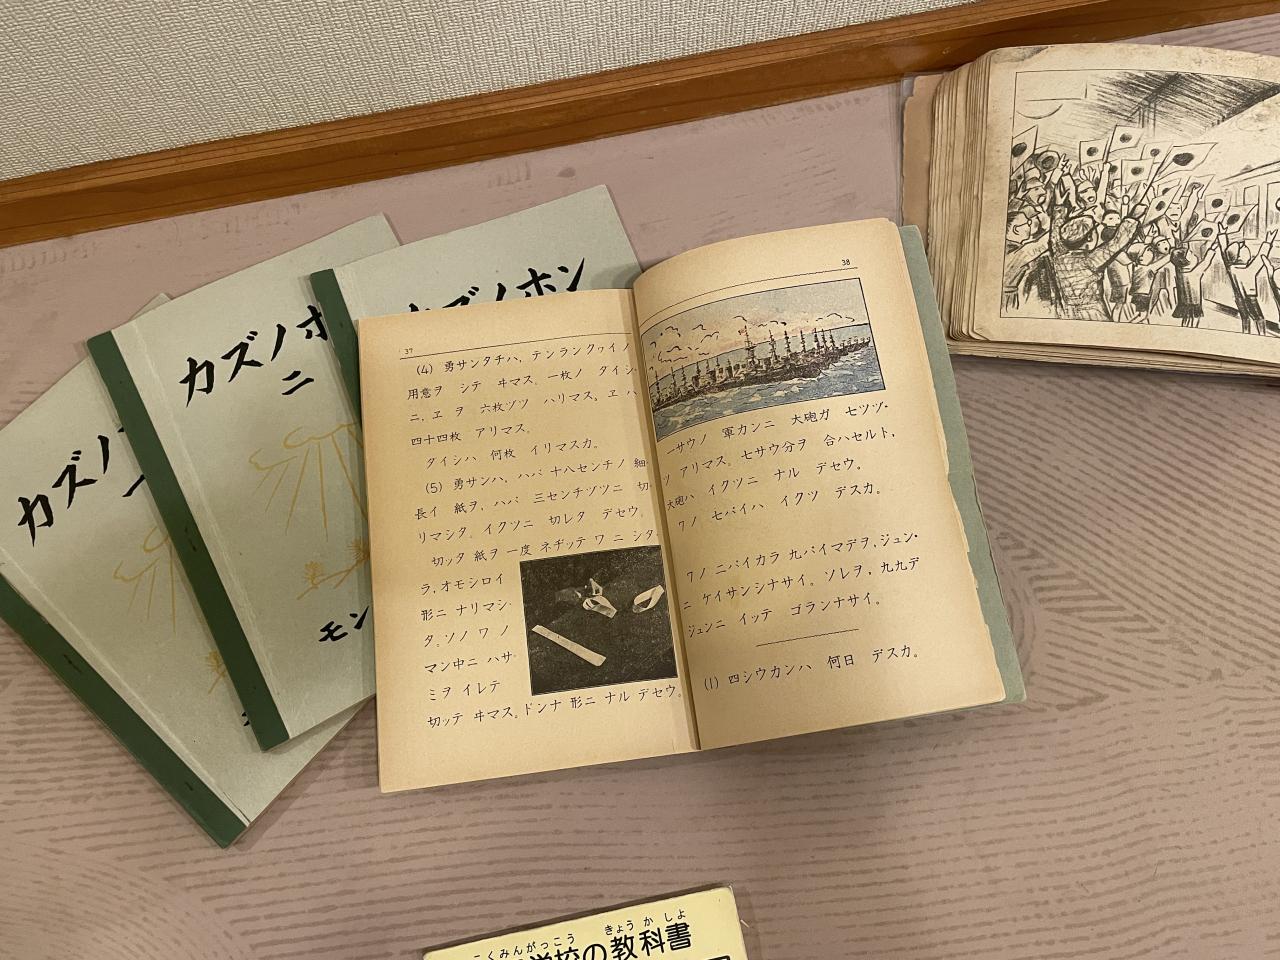 カズノ
一
カズノホ
ニ
モン
カズノホン
37
(4) 勇サンタチハ、テンランクヮイノ
用意ヲ シテ ヰマス。一枚ノ タイシ
ニ、ヱ ヲ 六枚ヅツ ハリマス。ヱ ハ
四十四枚 アリマス。
タイシハ 何枚 イリマスカ。
(5) 勇サンハ、ハバ 十八センチノ 細
長イ 紙ヲ、ハバ 三センチヅツニ 切
リマシタ。イクツニ 切レタ デセウ。
切ッタ 紙ヲ 一度 ネヂッテ ワ ニ シタ
ラ、オモシロイ
形ニ ナリマシ
タ。ソノ ワ ノ
マン中ニ ハサ
ミヲ イレテ
切ッテ ヰマス。ドンナ 形ニ ナル デセウ。
38
一サウノ 軍カンニ 大砲ガ セツヅ
ツ アリマス。七サウ分ヲ 合ハセルト、
大砲ハ イクツニ ナル デセウ。
ワノ 七バイハ イクツ デスカ。
ワノ 二バイカラ 九バイマデヲ、ジュン
ニ ケイサンシナサイ。ソレヲ、九九デ
ジュンニ イッテ ゴランナサイ。
(1) 四シウカンハ 何日 デスカ。
こくみんがっこう きょうかしょ
学校の教科書